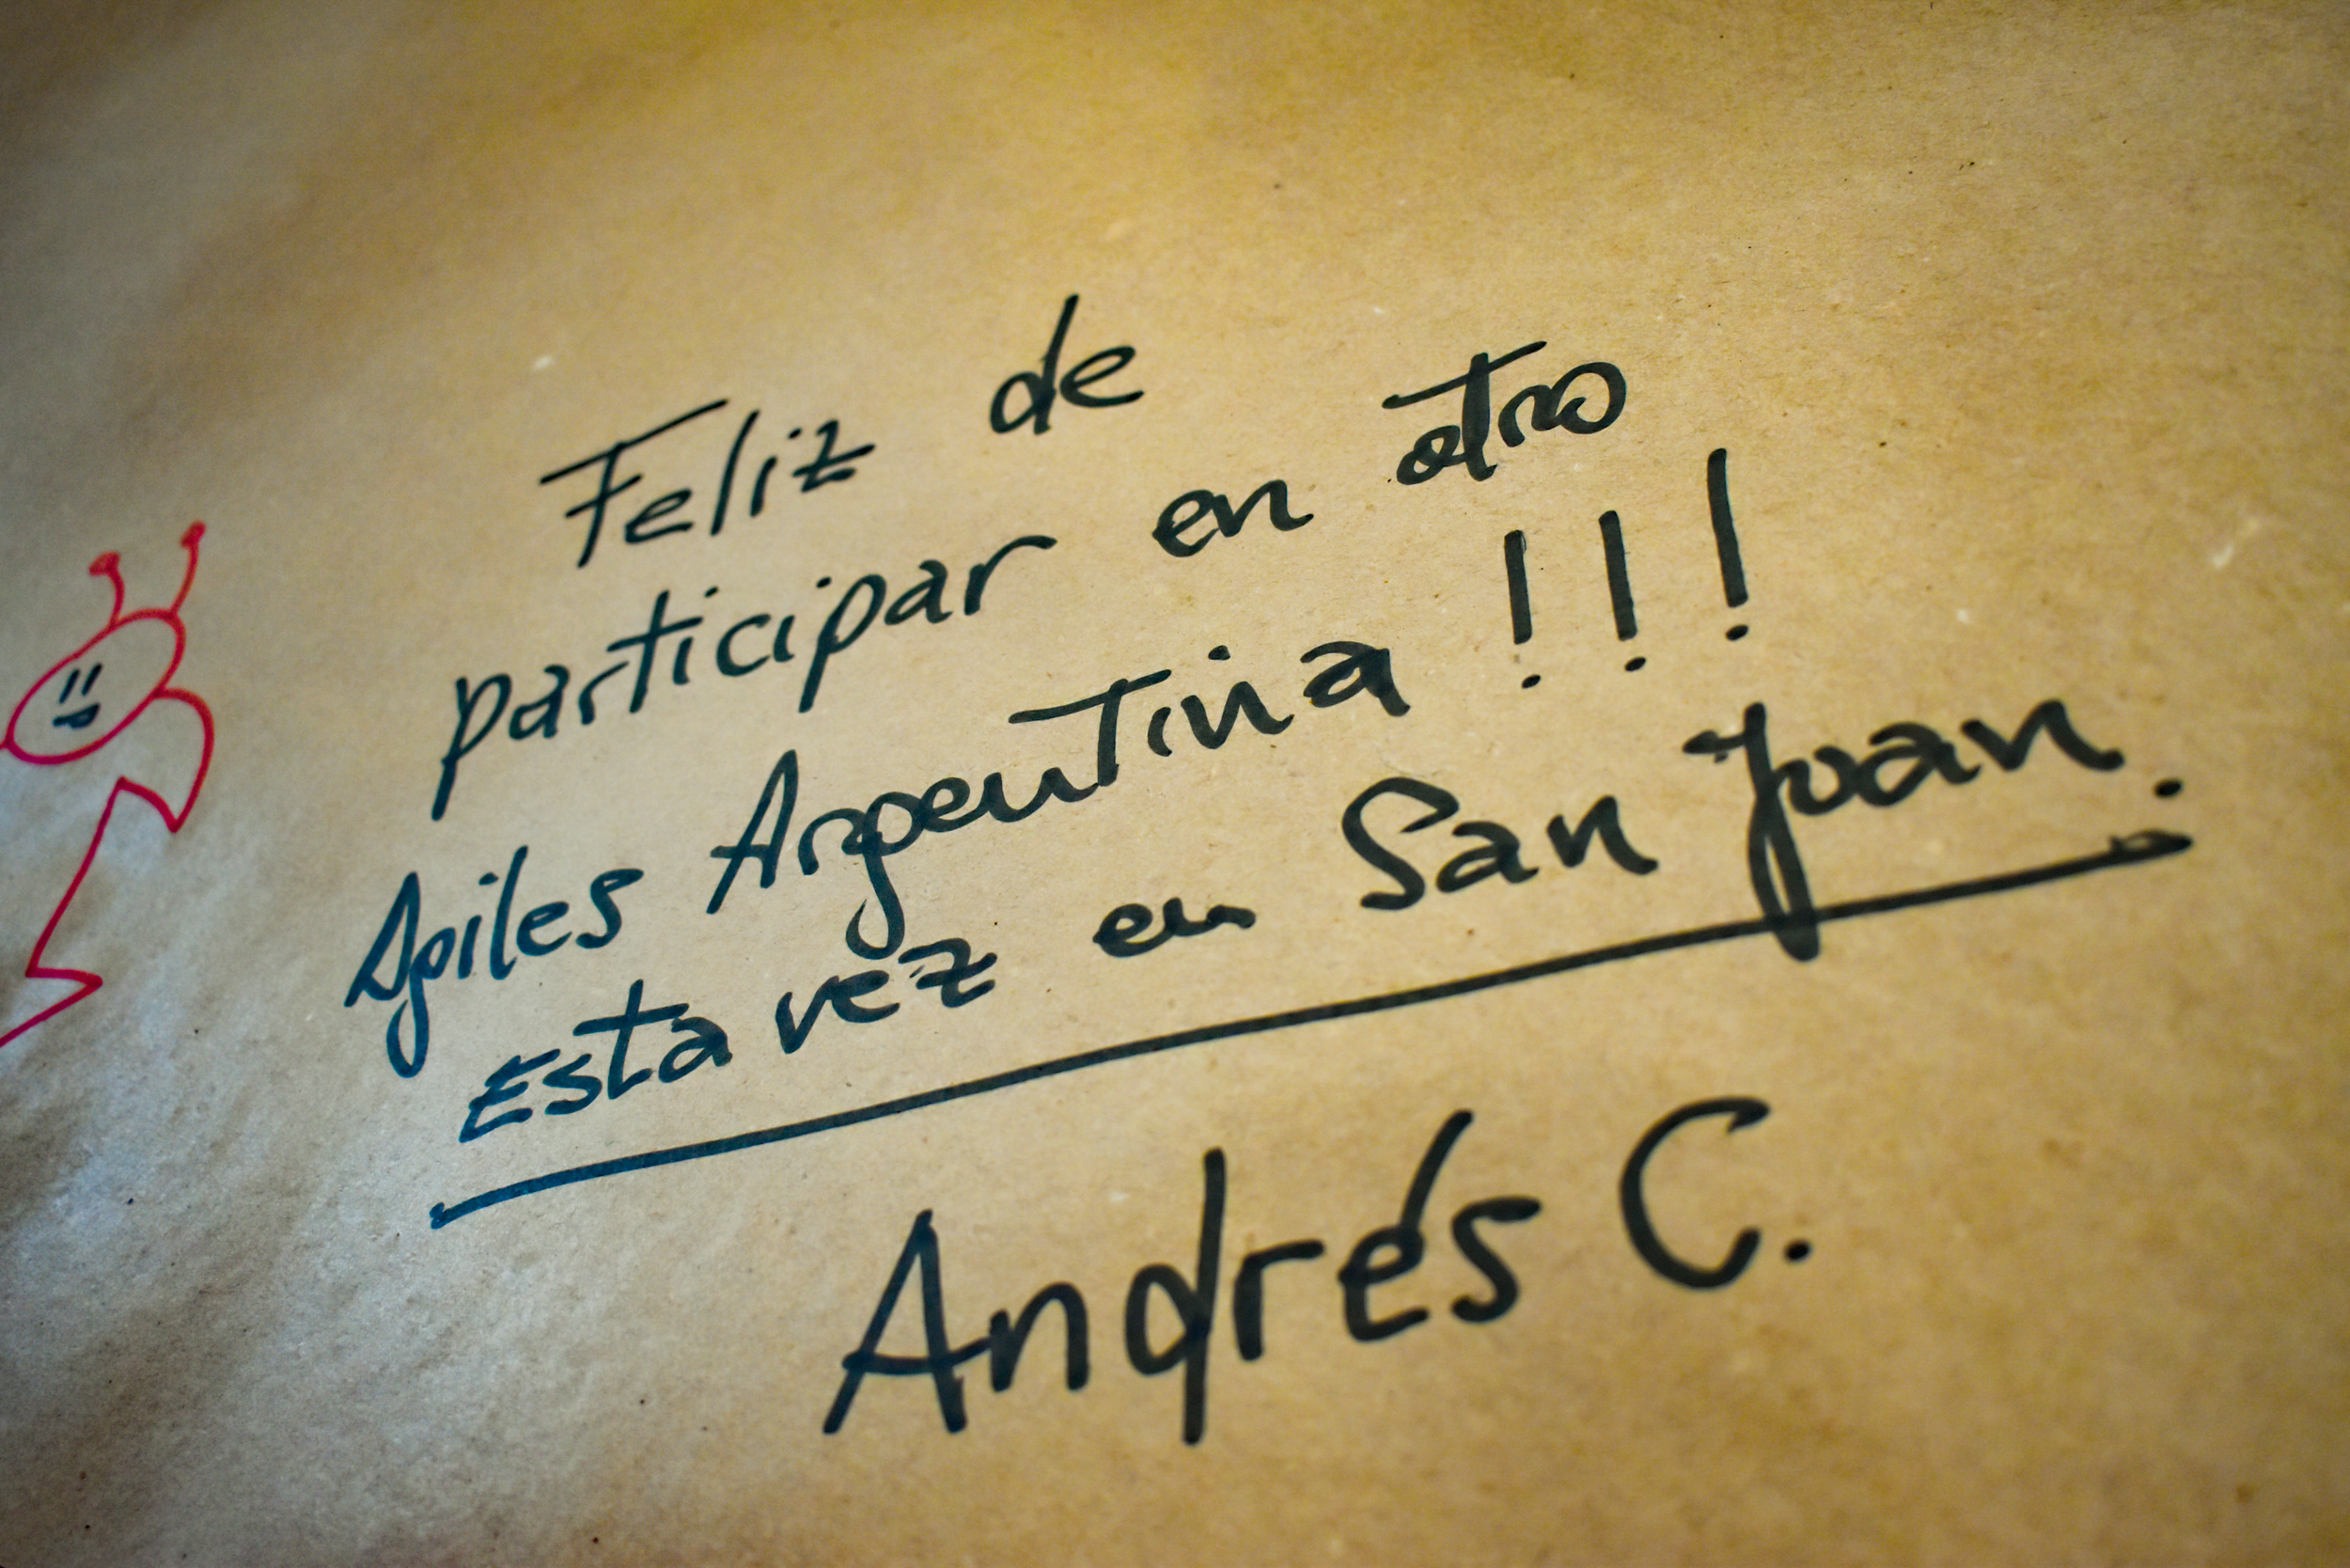 Feliz de
participar en otro
Agiles Argentina !!!
Esta vez en San Juan.
Andrés C.